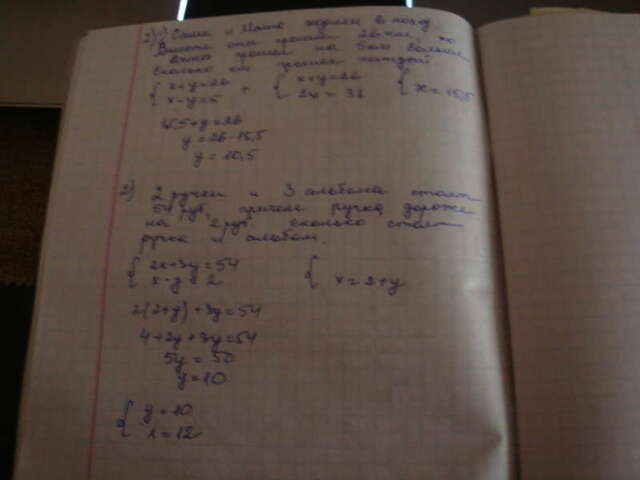 2) 1) Саша и Маша ходили в поход
Вместе они прошли 26 км, но
прошел на 5 км больше
сколько км прошел каждый
{ x+y=26 + { x+y=26 { x=15,5
x-y=5 2x=31
15,5+y=26
y=26-15,5
y=10,5
2) 2 ручки и 3 альбома стоят
54 руб, причем ручка дороже
на 2 руб. сколько стоит
ручка и альбом.
{ 2x+3y=54 {
x-y=2 x=2+y
2(2+y)+3y=54
4+2y+3y=54
5y=50
y=10
{ y=10
x=12